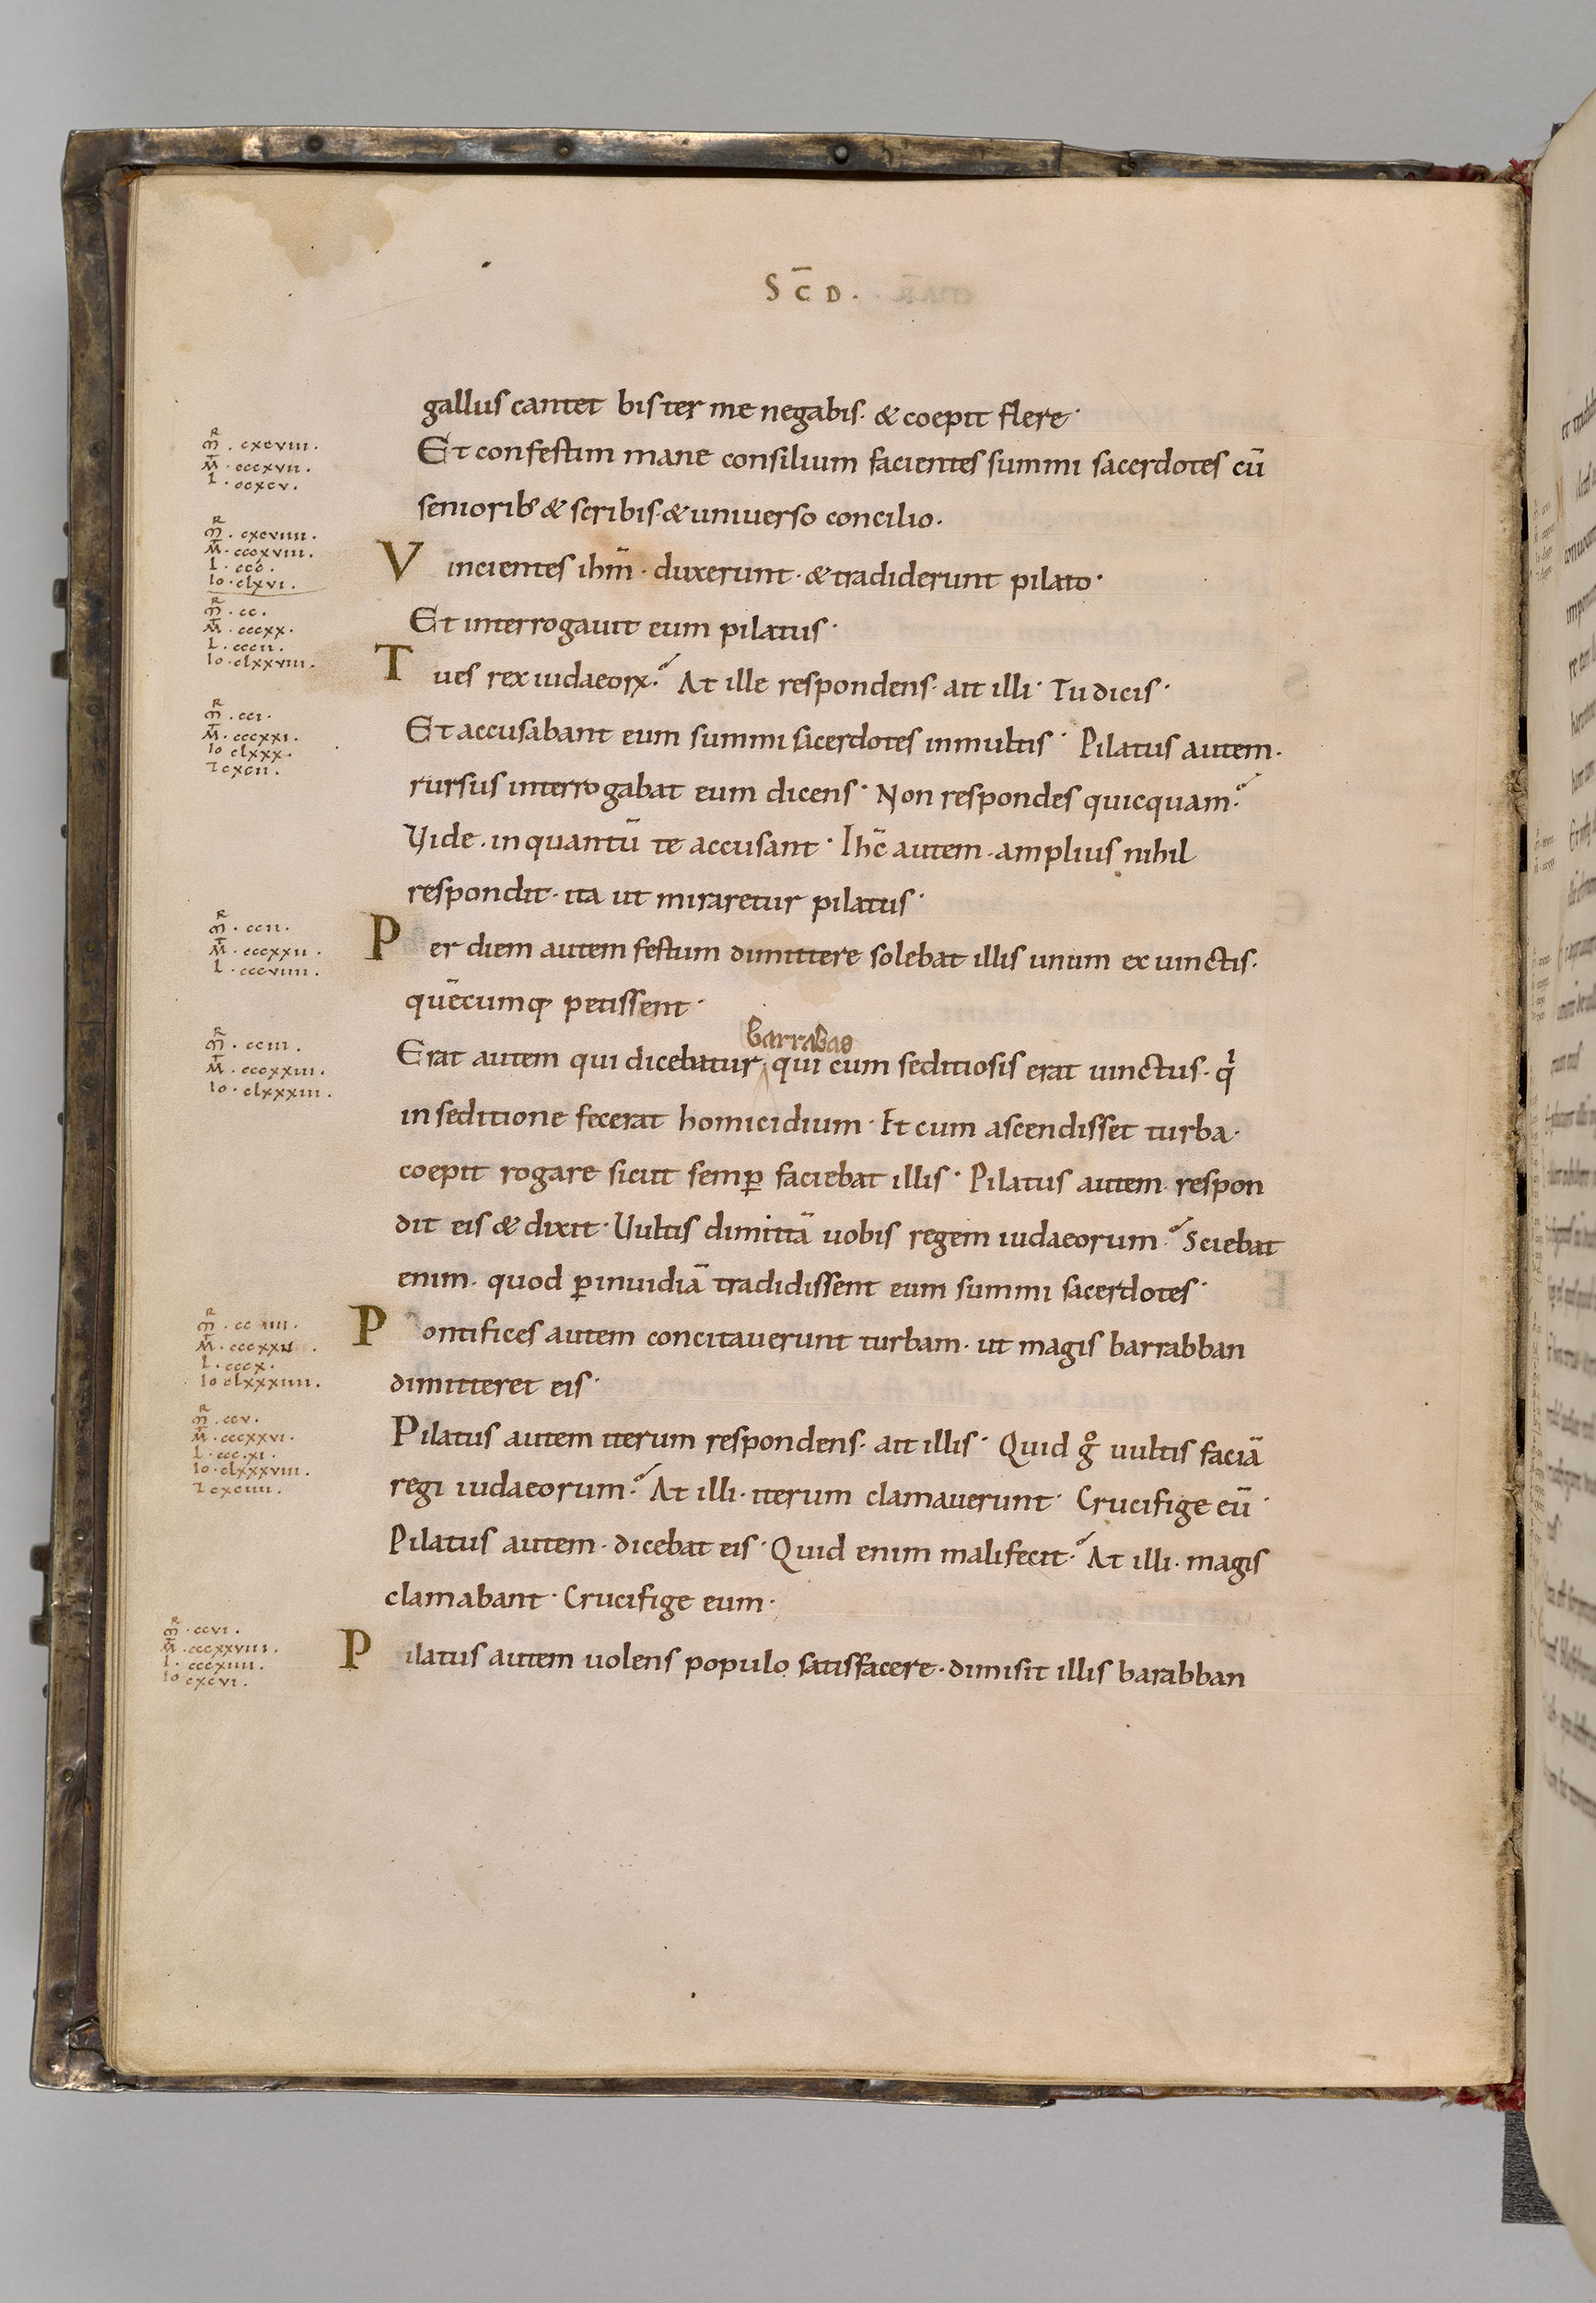 Sc̄D.
gallus cantet bis ter me negabis. & coepit flere.
Et confestim mane consilium facientes summi sacerdotes cū
seniorib; & scribis. & uniuerso concilio.
Vincientes ihm̄. duxerunt. & tradiderunt pilato.
Et interrogauit eum pilatus.
Tu es rex iudaeoꝝ? At ille respondens. ait illi. Tu dicis.
Et accusabant eum summi sacerdotes in multis. Pilatus autem.
rursus interrogabat eum dicens. Non respondes quicquam?
Uide. in quantū te accusant. Ihc̄ autem. amplius nihil
respondit. ita ut miraretur pilatus.
Per diem autem festum dimittere solebat illis unum ex uinctis.
quēcumq; petissent.
barrabas
Erat autem qui dicebatur, qui cum seditiosis erat uinctus. q̇
in seditione fecerat homicidium. Et cum ascendisset turba.
coepit rogare sicut semꝑ faciebat illis. Pilatus autem. respon
dit eis & dixit. Uultis dimittā uobis regem iudaeorum? Sciebat
enim. quod ꝑ inuidiā tradidissent eum summi sacerdotes.
Pontifices autem concitauerunt turbam. ut magis barrabban
dimitteret eis.
Pilatus autem iterum respondens. ait illis. Quid gͦ uultis faciā
regi iudaeorum? At illi. iterum clamauerunt. Crucifige eū.
Pilatus autem. dicebat eis. Quid enim mali fecit? At illi. magis
clamabant. Crucifige eum.
Pilatus autem uolens populo satisfacere. dimisit illis barabban
m̄R. cxcviii.
M̄. cccxvii.
l. ccxcv.
m̄R. cxcviiii.
M̄. cccxviii.
l. ccc.
Io. clxvi.
m̄R. cc.
M̄. cccxx.
l. cccii.
Io. clxxviii.
m̄R. cci.
M̄. cccxxi.
Io clxxx.
cxcii.
m̄R. ccii.
M̄. cccxxii.
l. cccviiii.
m̄R. cciii.
M̄. cccxxiii.
Io. clxxxiii.
m̄R. cciiii.
l. cccx.
Io clxxxiiii.
m̄R. ccv.
M̄. cccxxvi.
l. ccc.xi.
Io. clxxxviii.
cxciiii.
m̄R. ccvi.
M̄. cccxxviii.
l. cccxiiii.
Io cxcvi.